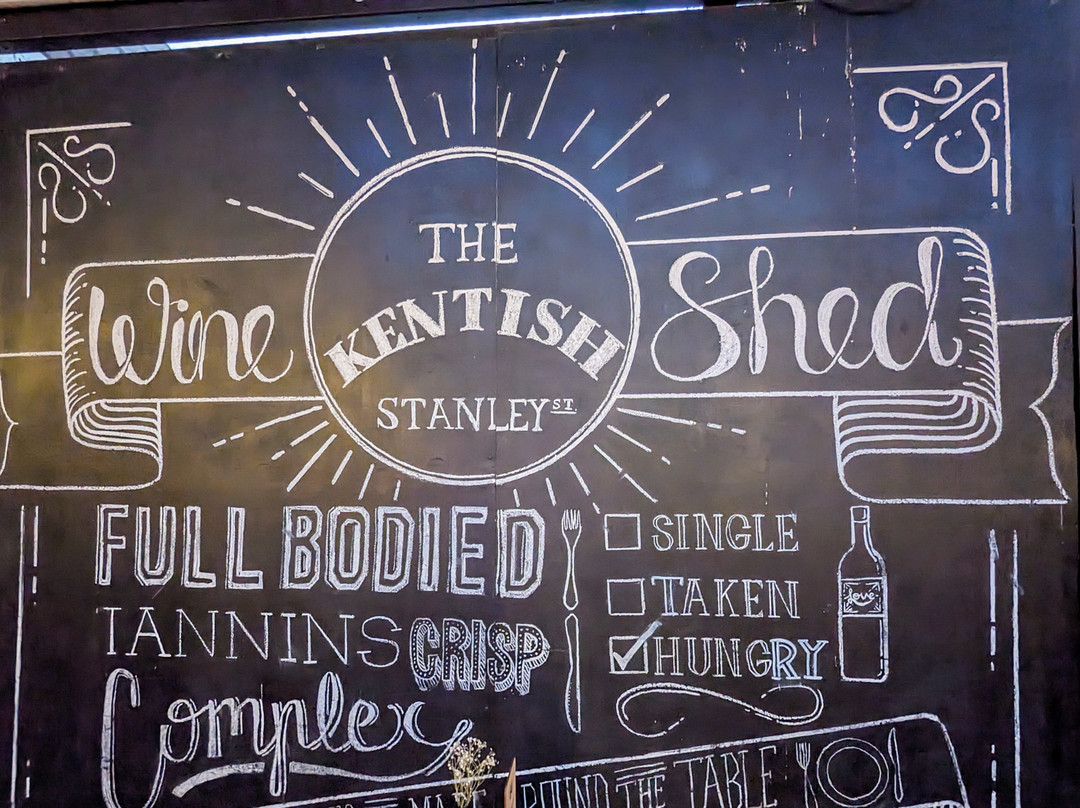 THE
Wine KENTISH Shed
STANLEY ST.
FULL BODIED
TANNINS CRISP
Complex
SINGLE
TAKEN
HUNGRY
love
ROUND THE TABLE